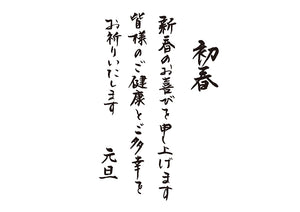 初春
新春のお喜びを申し上げます
皆様のご健康とご多幸を
お祈りいたします
元旦